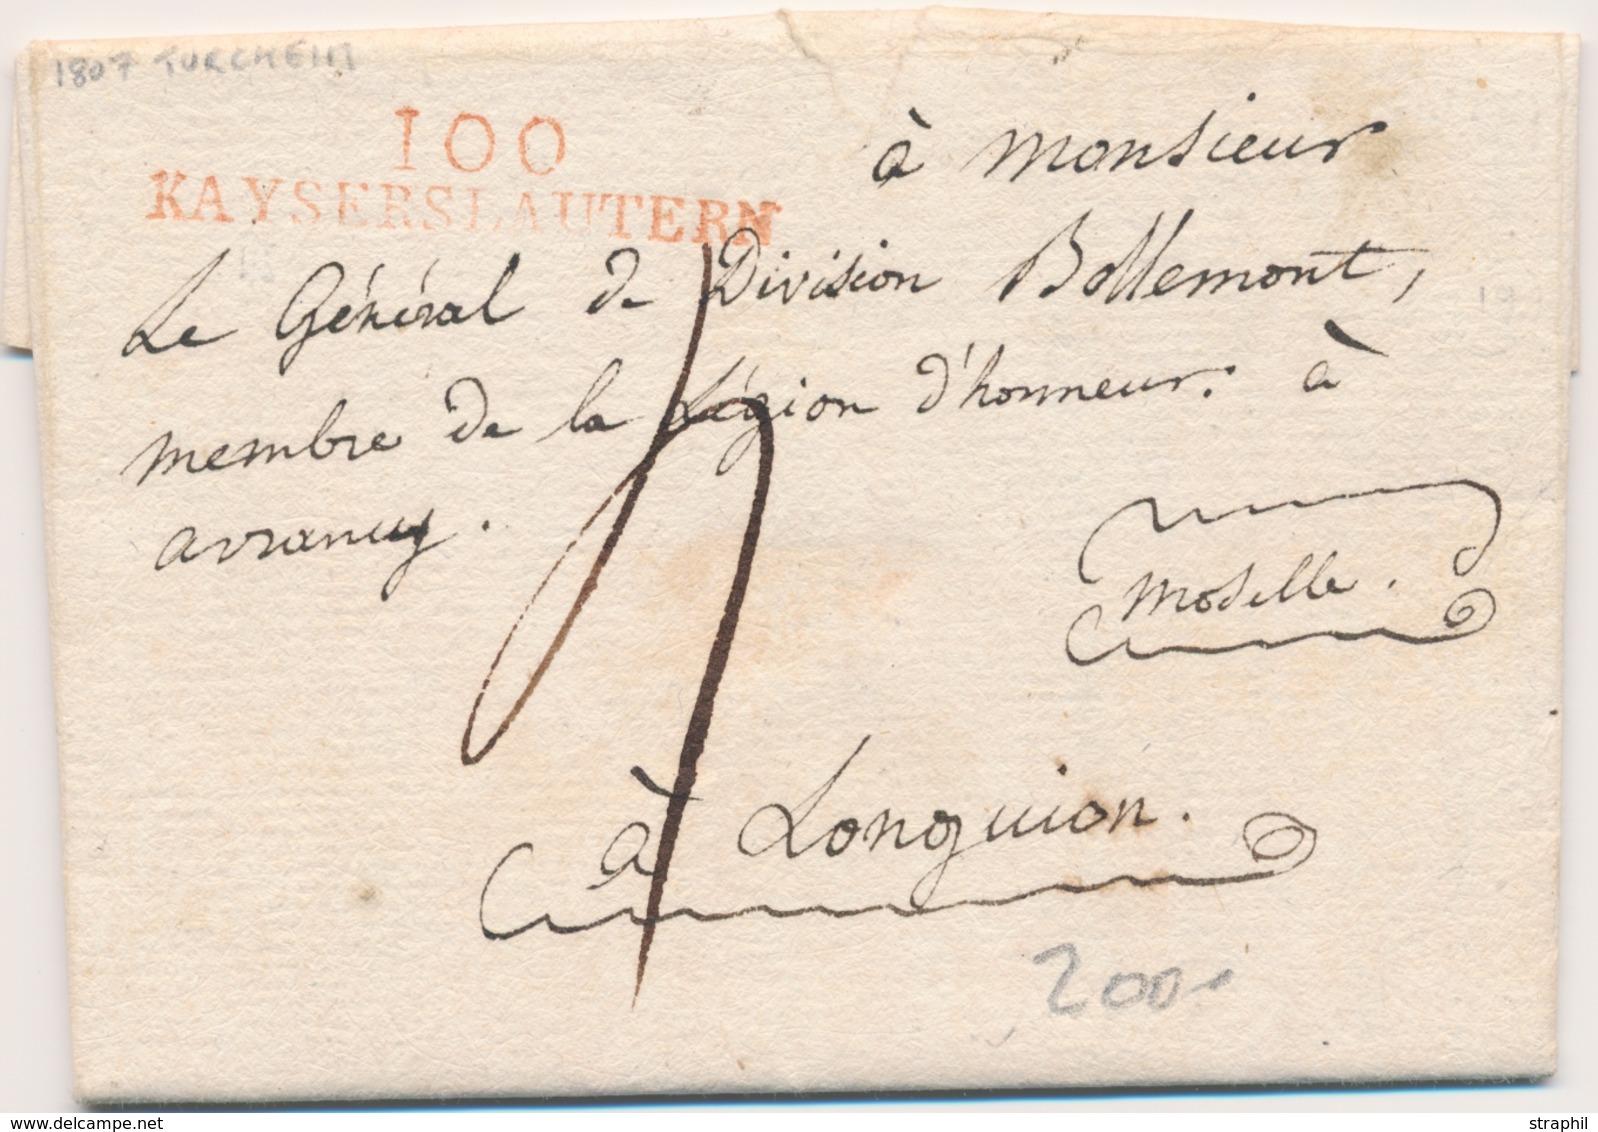 1807 TURCHEIM
100
KAYSERSLAUTERN
à Monsieur
Le Général de Division Bollemont,
membre de la Légion d'honneur. à
arrancy.
Moselle.
à Longuion.
200
straphil